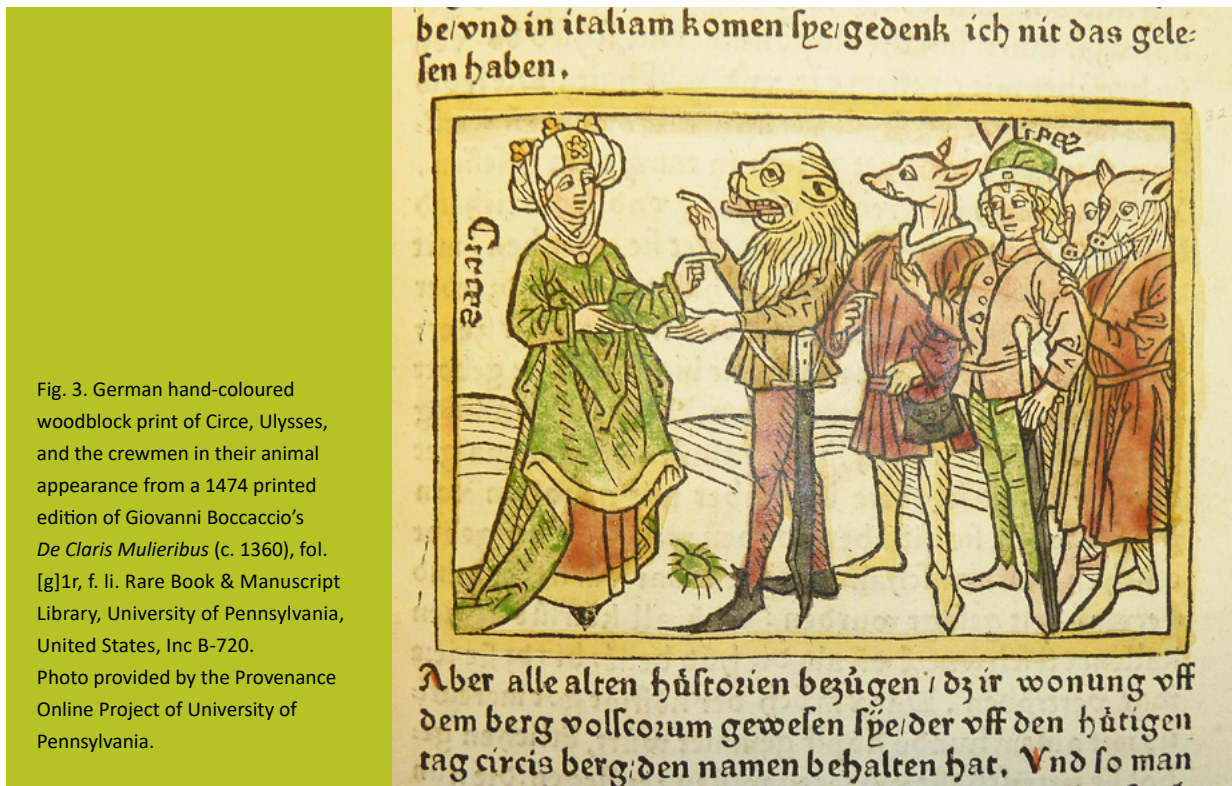 Fig. 3. German hand-coloured
woodblock print of Circe, Ulysses,
and the crewmen in their animal
appearance from a 1474 printed
edition of Giovanni Boccaccio's
De Claris Mulieribus (c. 1360), fol.
[g]1r, f. li. Rare Book & Manuscript
Library, University of Pennsylvania,
United States, Inc B-720.
Photo provided by the Provenance
Online Project of University of
Pennsylvania.
be/vnd in italiam komen ſye/gedenk ich nit das gele-
ſen haben.
Aber alle alten hüſtorien bezügen / dz ir wonung vff
dem berg volſcorum geweſen ſye/der vff den hütigen
tag circis berg/den namen behalten hat. Vnd ſo man